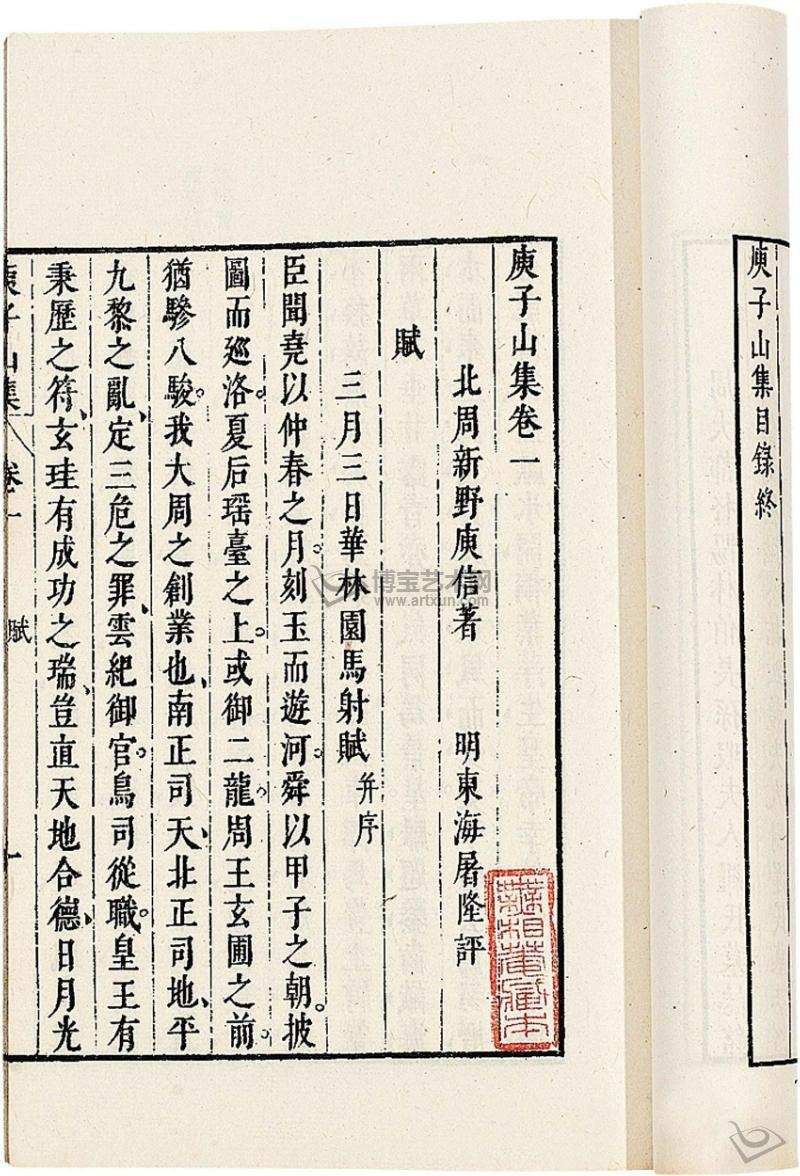 庾子山集目錄終
庾子山集卷一
北周新野庾信著　明東海屠隆評
賦
三月三日華林園馬射賦并序
臣聞堯以仲春之月、刻玉而遊河。舜以甲子之朝。披
圖而廵洛。夏后瑶臺之上。或御二龍。周王玄圃之前。
猶驂八駿。我大周之創業也、南正司天、北正司地、平
九黎之亂、定三危之罪、雲紀御官。鳥司從職。皇王有
秉歷之符、玄珪有成功之瑞、豈直天地合德、日月光
庾子山集　卷一　賦　一
博宝艺术网
www.artxun.com